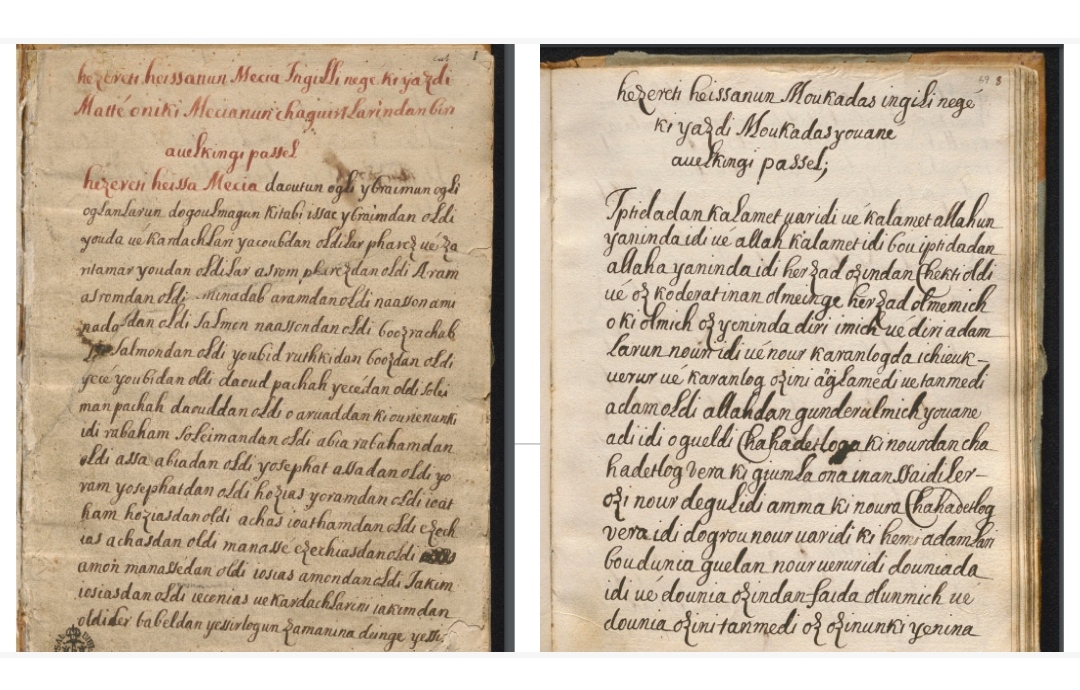 hezereti heissanun Mecia Ingilli nege ki yazdi
Matté oniki Mecianun chaguirtlarindan biri
auelkingi passel
hezereti heissa Mecia daoutun ogli ybraimun ogli
oglanlarun dogoulmagun kitabi issac ybraimdan oldi
youda ué kardachlari yacoubdan oldilar pharez ué za
ntamar youdan oldilar asrom pharezdan oldi Aram
asromdan oldi aminadab aramdan oldi naasson ami
nadasdan oldi salmon naassondan oldi booz rachab
salmondan oldi youbid ruthkidan boozdan oldi
yecé youbidan oldi daoud pachah yecédan oldi solei
man pachah daouddan oldi o aruaddan ki ourienunki
idi rabaham soleimandan oldi abia rabahamdan
oldi assa abiadan oldi yosephat assadan oldi yo
ram yosephatdan oldi hozias yoramdan oldi ioat
ham hoziasdan oldi achas ioathamdan oldi ezech
ias achasdan oldi manassé ezechiasdan oldi
amon manassédan oldi iosias amondan oldi Iakim
iosiasdan oldi ieconias ue kardachlarini iakimdan
oldiler babeldan yessirlogun zamanina deinge
1
hezereti heissanun Moukadas ingili negé
ki yazdi Moukadas youane
auelkingi passel;
59 8
Iptidadan kalamet uaridi ué kalamet allahun
yaninda idi ué allah kalamet idi bou iptidadan
allaha yaninda idi her zad ozindan Chekti oldi
ué oz koderatinan olmeinge her zad olmemich
o ki olmich oz yeninda diri imich ué diri adam
larun nouri idi ué nour karanlogda ichieuk-
uerur ué karanlog ozini aglamedi ue tanmedi
adam oldi allahdan gunderulmich youane
adi idi o gueldi Chahadetloga ki nourdan cha
hadetlog vera ki giumla ona inan ssaidiler-
ozi nour degulidi amma ki noura Chahadetlog
vera idi dogrou nour uaridi ki hemi adamlari
bou dunia guelan nour ueruridi douniada
idi ué dounia ozindan faida olunmich ue
dounia ozini tanmedi oz ozinunki yenina